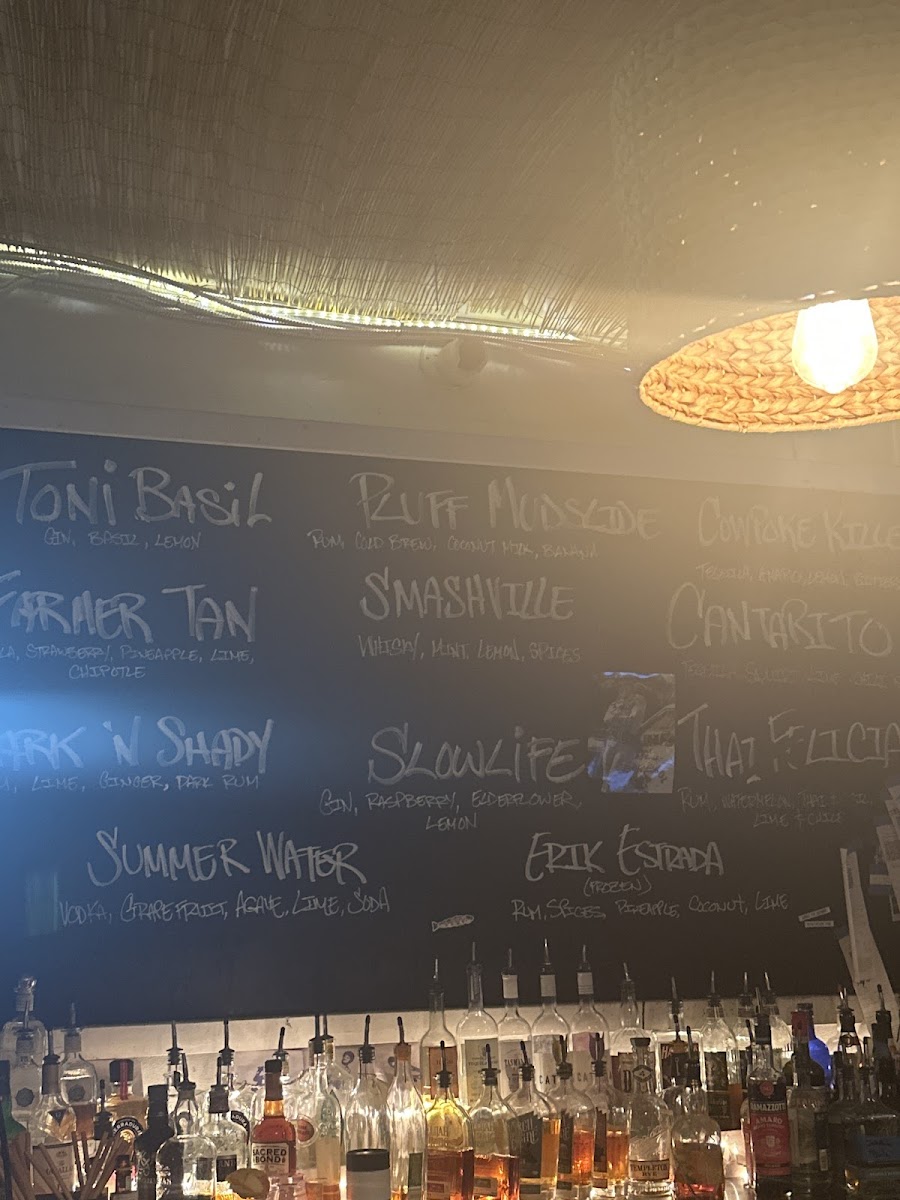 TONI BASIL
GIN, BASIL, LEMON
PLUFF MUDSLIDE
RUM, COLD BREW, COCONUT MILK, BANANA
COWPOKE KILLE
TEQUILA, LEMON,
FARMER TAN
LA, STRAWBERRY, PINEAPPLE, LIME,
CHIPOTLE
SMASHVILLE
WHISKY, MINT, LEMON, SPICES
CANTARITO
ARK 'N SHADY
M, LIME, GINGER, DARK RUM
SLOWLIFE
GIN, RASPBERRY, ELDERFLOWER,
LEMON
THAI FELICIA
RUM, WATERMELON,
LIME & CHILE
SUMMER WATER
VODKA, GRAPEFRUIT, AGAVE, LIME, SODA
ERIK ESTRADA
(FROZEN)
RUM, SPICES, PINEAPPLE, COCONUT, LIME
SACRED
BOND
TEMPLETON
RYE
RAMAZZOTTI
AMARO